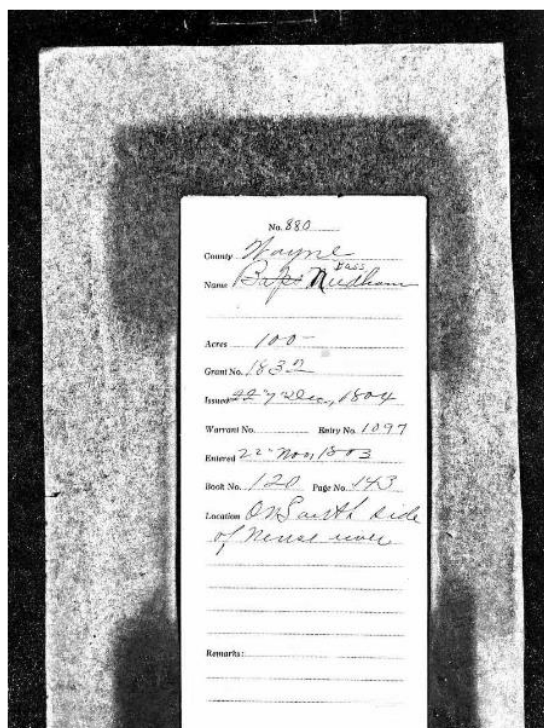 No. 880
County Wayne
Bass
Name Bass Needham
Acres 100
Grant No. 1832
Issued 22 Dec, 1804
Warrant No. Entry No. 1097
Entered 22 Nov, 1803
Book No. 120 Page No. 143
Location On South side
of Neuse river
Remarks: